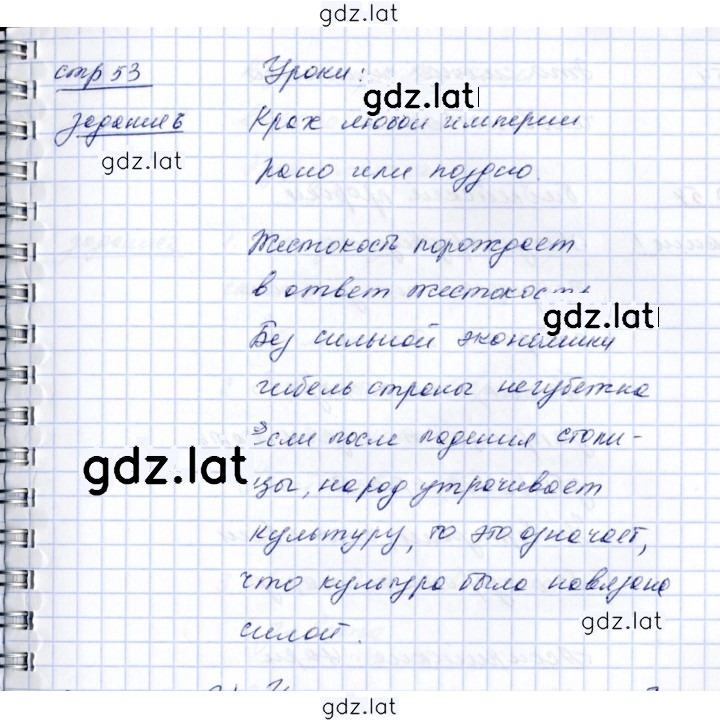 gdz.lat
стр 53 Уроки:
gdz.lat
задание 6 Крах любой империи
gdz.lat
рано или поздно.
Жестокость порождает
в ответ жестокость
gdz.lat
Без сильной экономики
гибель страны неизбежна
Если после падения столи-
gdz.lat
цы, народ утрачивает
культуру, то это означает,
что культура была навязана
gdz.lat
силой.
gdz.lat